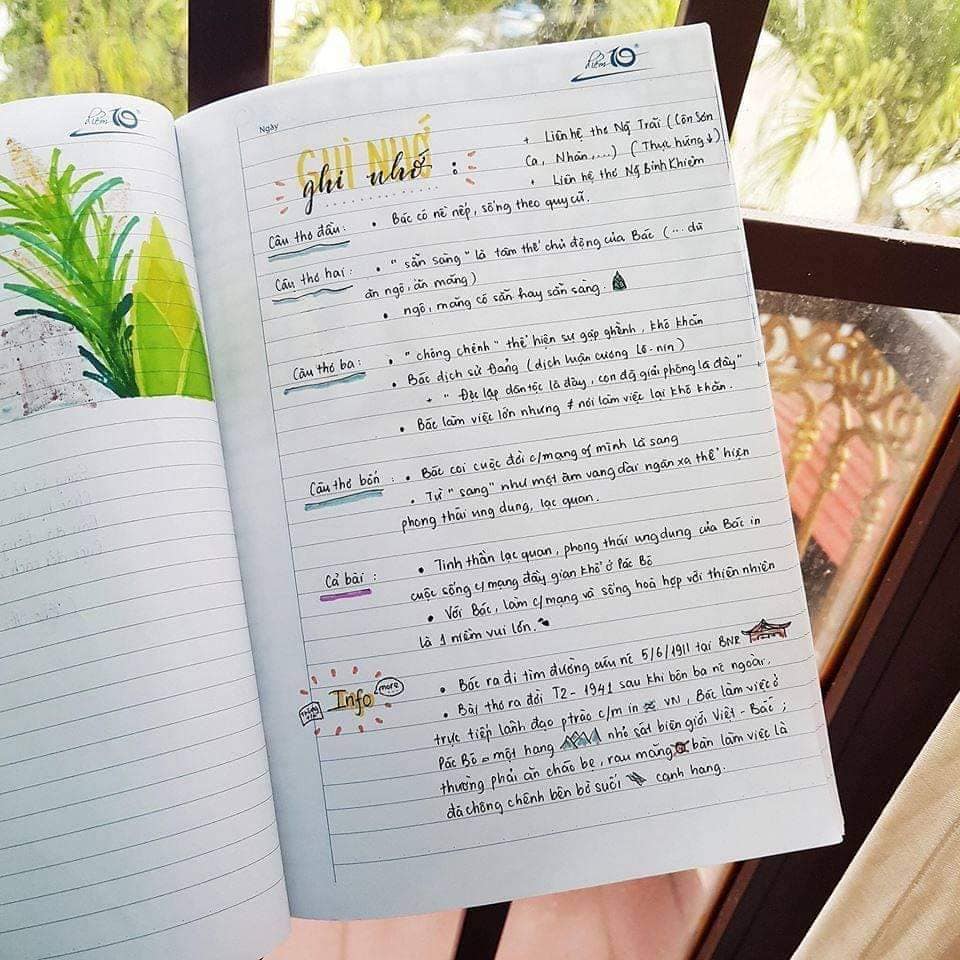 điểm 10
điểm 10
Ngày
GHI NHỚ
ghi nhớ :
+ Liên hệ thơ Ng Trãi (Côn Sơn
Ca, Nhàn,...) (Thực hứng ↓)
• Liên hệ thơ Ng Bỉnh Khiêm
Câu thơ đầu : • Bác có nề nếp, sống theo quy cũ.
Câu thơ hai : • "sẵn sàng" là tâm thế chủ động của Bác (... dù
ăn ngô, ăn măng)
• ngô, măng có sẵn hay sẵn sàng.
Câu thơ ba : • "chông chênh" thể hiện sự gập ghềnh, khó khăn
• Bác dịch sử Đảng (dịch luận cương Lê-nin)
+ "Độc lập dân tộc là đây, con đg giải phóng là đây"
• Bác làm việc lớn nhưng ≠ nơi làm việc lại khó khăn.
Câu thơ bốn : • Bác coi cuộc đời c/mạng of mình là sang
• Từ "sang" như một âm vang dài ngân xa thể hiện
phong thái ung dung, lạc quan.
Cả bài : • Tinh thần lạc quan, phong thái ung dung của Bác in
cuộc sống c/mạng đầy gian khổ ở Pác Bó
• Với Bác, làm c/mạng và sống hoà hợp với thiên nhiên
là 1 niềm vui lớn.
Info
more
• Bác ra đi tìm đường cứu nc 5/6/1911 tại BNR
• Bài thơ ra đời T2 - 1941 sau khi bôn ba nc ngoài,
trực tiếp lãnh đạo ptrào c/m in VN, Bác làm việc ở
Pác Bó = một hang nhỏ sát biên giới Việt - Bắc ;
thường phải ăn cháo bẹ, rau măng bàn làm việc là
đá chông chênh bên bờ suối cạnh hang.